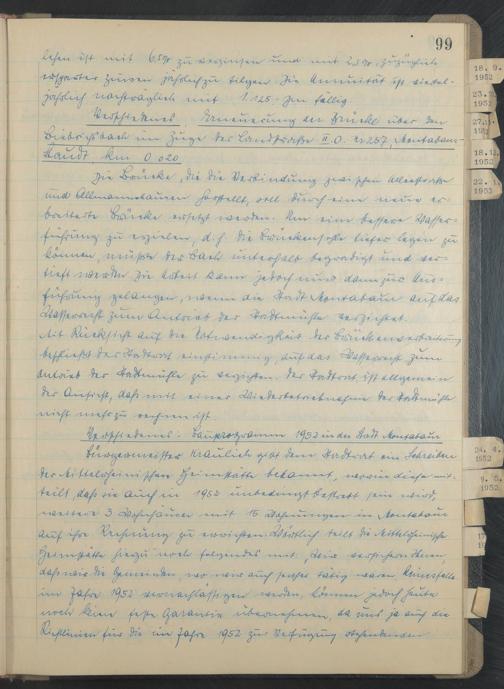 99
lehen ist mit 6,5% zu verzinsen und mit 2,5% zuzüglich
ersparter Zinsen jährlich zu tilgen. Die Annuität ist viertel-
jährlich nachträglich mit 1.125.- DM fällig.
Verschiedenes: Erneuerung der Brücke über den
Biebrichsbach im Zuge der Landstraße II. O. Nr 257, Montabaur-
Staudt km 0.020
Die Brücke, die die Verbindung zwischen Alleestraße
und Allmannshausen herstellt, soll durch eine neue er-
breiterte Brücke ersetzt werden. Um eine bessere Wasser-
führung zu erzielen, d.h. die Brückensohle tiefer legen zu
können, müßte der Bach unterhalb begradigt und ver-
tieft werden. Die Arbeit kann jedoch nur dann zur Aus-
führung gelangen, wenn die Stadt Montabaur auf das
Wasserrecht zum Antrieb der Stadtmühle verzichtet.
Mit Rücksicht auf die Notwendigkeit der Brückenverbreiterung
beschließt der Stadtrat einstimmig, auf das Wasserrecht zum
Antrieb der Stadtmühle zu verzichten. Der Stadtrat ist allgemein
der Ansicht, daß mit einer Wiederbetriebnahme der Stadtmühle
nicht mehr zu rechnen ist.
Verschiedenes: Bauprogramm 1952 in der Stadt Montabaur
Bürgermeister Kraulich gibt dem Stadtrat ein Schreiben
der Mittelrheinischen Heimstätte bekannt, worin diese mit-
teilt, daß sie auch in 1952 unbedingt bestrebt sein wird,
weitere 3 Wohnhäuser mit 18 Wohnungen in Montabaur
auf ihre Rechnung zu errichten. Wörtlich teilt die Mittelrheinische
Heimstätte hierzu noch folgendes mit: "Wir versichern Ihnen,
daß wie die Gemeinden, wo wir auch seither tätig waren keinesfalls
im Jahre 1952 vernachlässigen werden, können jedoch heute
noch keine feste Garantie übernehmen, da uns ja auch die
Richtlinien für die im Jahre 1952 zur Verfügung stehenden
18. 9. 1952
1952
18. 12. 1952
22. 1. 1953
24. 4. 1952
9. 5. 1952